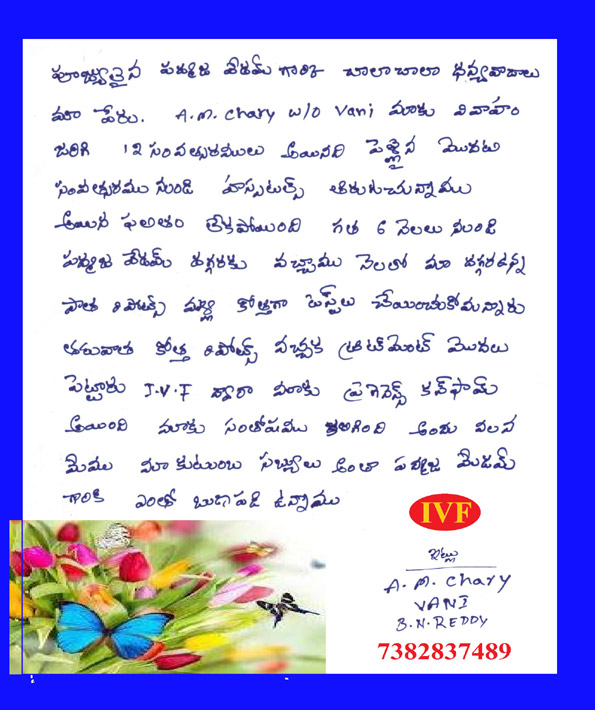 పూజ్యులైన పద్మజ మేడమ్ గారికి చాలాచాలా ధన్యవాదాలు
మా పేరు. A.M. chary w/o Vani మాకు వివాహం
జరిగి 12 సంవత్సరములు అయినది పెళ్లైన మొదటి
సంవత్సరము నుండి హాస్పటల్స్ తిరుగుచున్నాము
అయిన ఫలితం లేకపోయింది గత 6 నెలలు నుండి
పద్మజ మేడమ్ దగ్గరకు వచ్చాము నెలలో మా దగ్గరఉన్న
పాత రిపోర్ట్స్ మళ్లి కోత్తగా టెస్ట్‌లు చేయించుకోమన్నారు
తరువాత కోత్త రిపోర్ట్స్ వచ్చక ట్రీట్‌మెంట్ మొదలు
పెట్టారు I.V.F ద్వారా మాకు ప్రెగెనెన్స్ కన్‌ఫామ్
అయింది మాకు సంతోషము కలిగింది అందు వలన
మేము మా కుటుంబ సభ్యులు అంతా పద్మజ మేడమ్
గారికి ఎంతో ఋణపడి ఉన్నాము
IVF
ఇట్లు
A. M. Chary
VANI
B.N. REDDY
7382837489